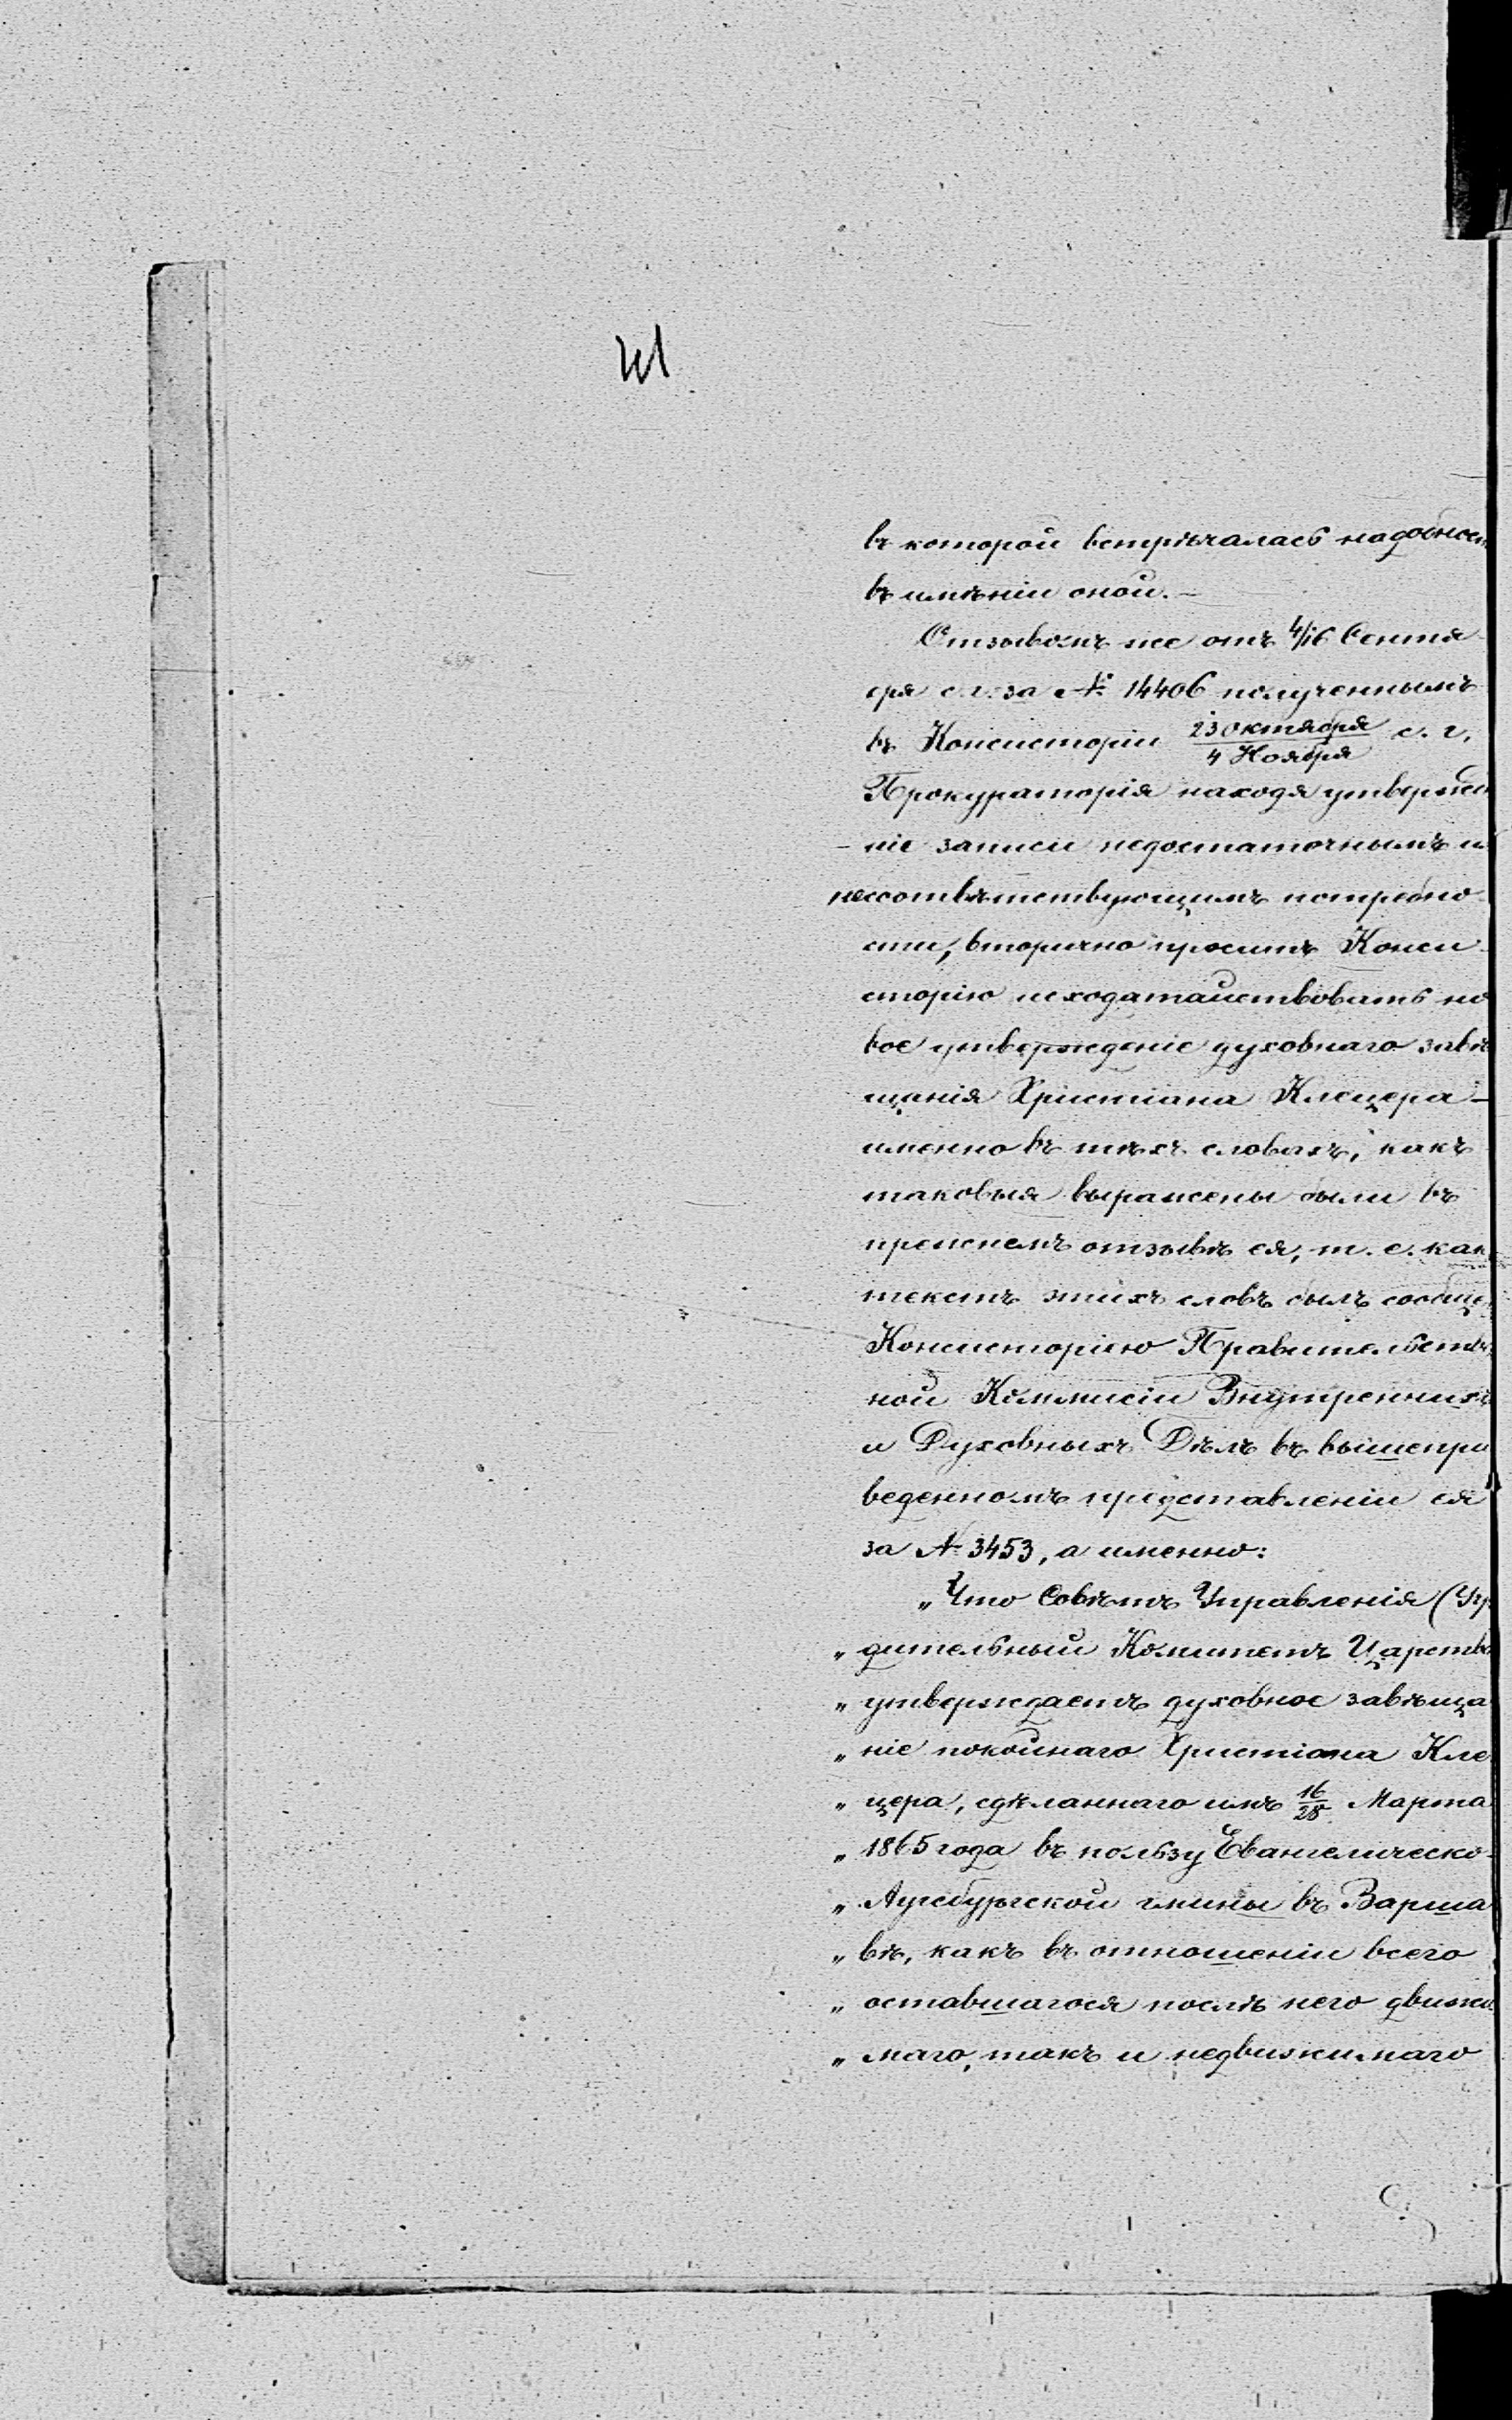 въ которой встрѣчалась надобност
въ имѣніи оной. —
Отзывомъ же отъ 4/16 Сентя-
бря с. г. за № 14406 полученнымъ
въ Консисторіи 23 Октября / 4 Ноября с. г.
Прокураторія находя утвержде
- ніе записи недостаточнымъ и
несоотвѣтствующимъ потребно-
сти, вторично проситъ Конси-
сторію исходатайствовать но
вое утвержденіе духовнаго завѣ
щанія Христіана Клецера —
именно въ тѣхъ словахъ, какъ
таковыя выражены были въ
прежнемъ отзывѣ ея, т. е. как
текстъ этихъ словъ былъ сообще
Консисторіею Правительств
ной Коммисіи Внутреннихъ
и Духовныхъ Дѣлъ въ вышепри
веденномъ представленіи ея
за № 3453, а именно:
„Что Совѣтъ Управленія (Учр
„ дительный Комитетъ Царств
„ утверждаетъ духовное завѣща
„ ніе покойнаго Христіана Кле
„ цера, сдѣланнаго имъ 16/28 Марта
„ 1865 года въ пользу Евангелическо-
„ Аугсбургской гмины въ Варша
„ вѣ, какъ въ отношеніи всего
„ оставшагося послѣ него движи
„ маго, такъ и недвижимаго